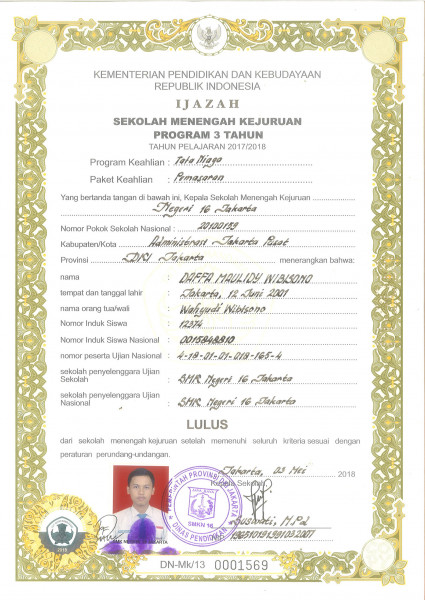 KEMENTERIAN PENDIDIKAN DAN KEBUDAYAAN
REPUBLIK INDONESIA
IJAZAH
SEKOLAH MENENGAH KEJURUAN
PROGRAM 3 TAHUN
TAHUN PELAJARAN 2017/2018
Program Keahlian : Tata Niaga
Paket Keahlian : Pemasaran
Yang bertanda tangan di bawah ini, Kepala Sekolah Menengah Kejuruan
Negeri 16 Jakarta
Nomor Pokok Sekolah Nasional : 20100159
Kabupaten/Kota : Administrasi Jakarta Pusat
Provinsi : DKI Jakarta menerangkan bahwa:
nama : DAFFA MAULIDY WIBISONO
tempat dan tanggal lahir : Jakarta, 12 Juni 2001
nama orang tua/wali : Wahyudi Wibisono
Nomor Induk Siswa : 12374
Nomor Induk Siswa Nasional : 0015848810
nomor peserta Ujian Nasional : 4-18-01-01-018-165-4
sekolah penyelenggara Ujian
Sekolah : SMK Negeri 16 Jakarta
sekolah penyelenggara Ujian
Nasional : SMK Negeri 16 Jakarta
LULUS
dari sekolah menengah kejuruan setelah memenuhi seluruh kriteria sesuai dengan
peraturan perundang-undangan.
Jakarta, 03 Mei 2018
Kepala Sekolah
SMKN 16
DINAS PENDIDIKAN
2018
DN-Mk/13 0001569